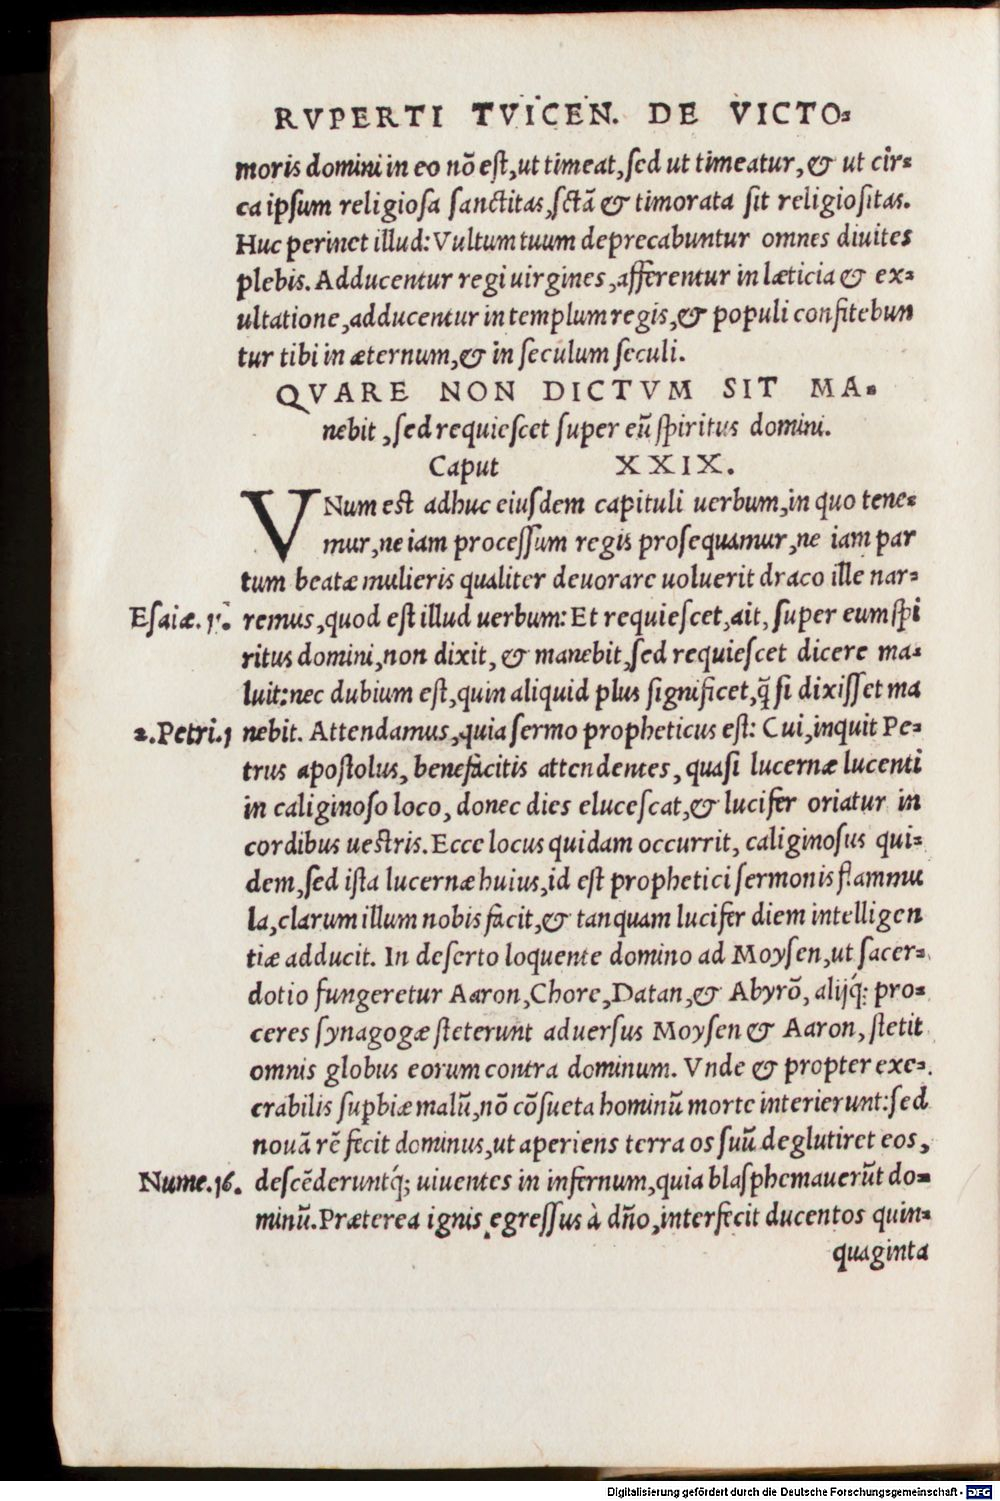 RVPERTI TVICEN. DE VICTO-
moris domini in eo nō eſt, ut timeat, ſed ut timeatur, & ut cir-
ca ipſum religioſa ſanctitas, ſctā & timorata ſit religioſitas.
Huc perinet illud: Vultum tuum deprecabuntur omnes diuites
plebis. Adducentur regi uirgines, afferentur in læticia & ex-
ultatione, adducentur in templum regis, & populi confitebun
tur tibi in æternum, & in ſeculum ſeculi.
QVARE NON DICTVM SIT MA-
nebit, ſed requieſcet ſuper eū ſpiritus domini.
Caput XXIX.
VNum est adhuc eiuſdem capituli uerbum, in quo tene-
mur, ne iam proceſſum regis proſequamur, ne iam par
tum beatæ mulieris qualiter deuorare uoluerit draco ille nar-
Eſaiæ. remus, quod eſt illud uerbum: Et requieſcet, ait, ſuper eum ſpi
ritus domini, non dixit, & manebit, ſed requieſcet dicere ma-
luit: nec dubium eſt, quin aliquid plus ſignificet, q̃ ſi dixiſſet ma
2. Petri. 1 nebit. Attendamus, quia ſermo propheticus eſt: Cui, inquit Pe-
trus apoſtolus, benefacitis attendentes, quaſi lucernæ lucenti
in caliginoſo loco, donec dies eluceſcat, & lucifer oriatur in
cordibus uestris. Ecce locus quidam occurrit, caliginoſus qui-
dem, ſed iſta lucernæ huius, id eſt prophetici ſermonis flammu
la, clarum illum nobis facit, & tanquam lucifer diem intelligen
tiæ adducit. In deſerto loquente domino ad Moyſen, ut ſacer-
dotio fungeretur Aaron, Chore, Datan, & Abyrō, alijq́; pro-
ceres ſynagogæ ſteterunt aduerſus Moyſen & Aaron, ſtetit
omnis globus eorum contra dominum. Vnde & propter exe-
crabilis ſupbiæ malū, nō cōſueta hominū morte interierunt: ſed
nouā rē fecit dominus, ut aperiens terra os ſuū deglutiret eos,
Nume. 16. deſcēderuntq́; uiuentes in infernum, quia blaſphemauerūt do-
minū. Præterea ignis egreſſus à dño, interfecit ducentos quin-
quaginta
Digitalisierung gefördert durch die Deutsche Forschungsgemeinschaft - DFG